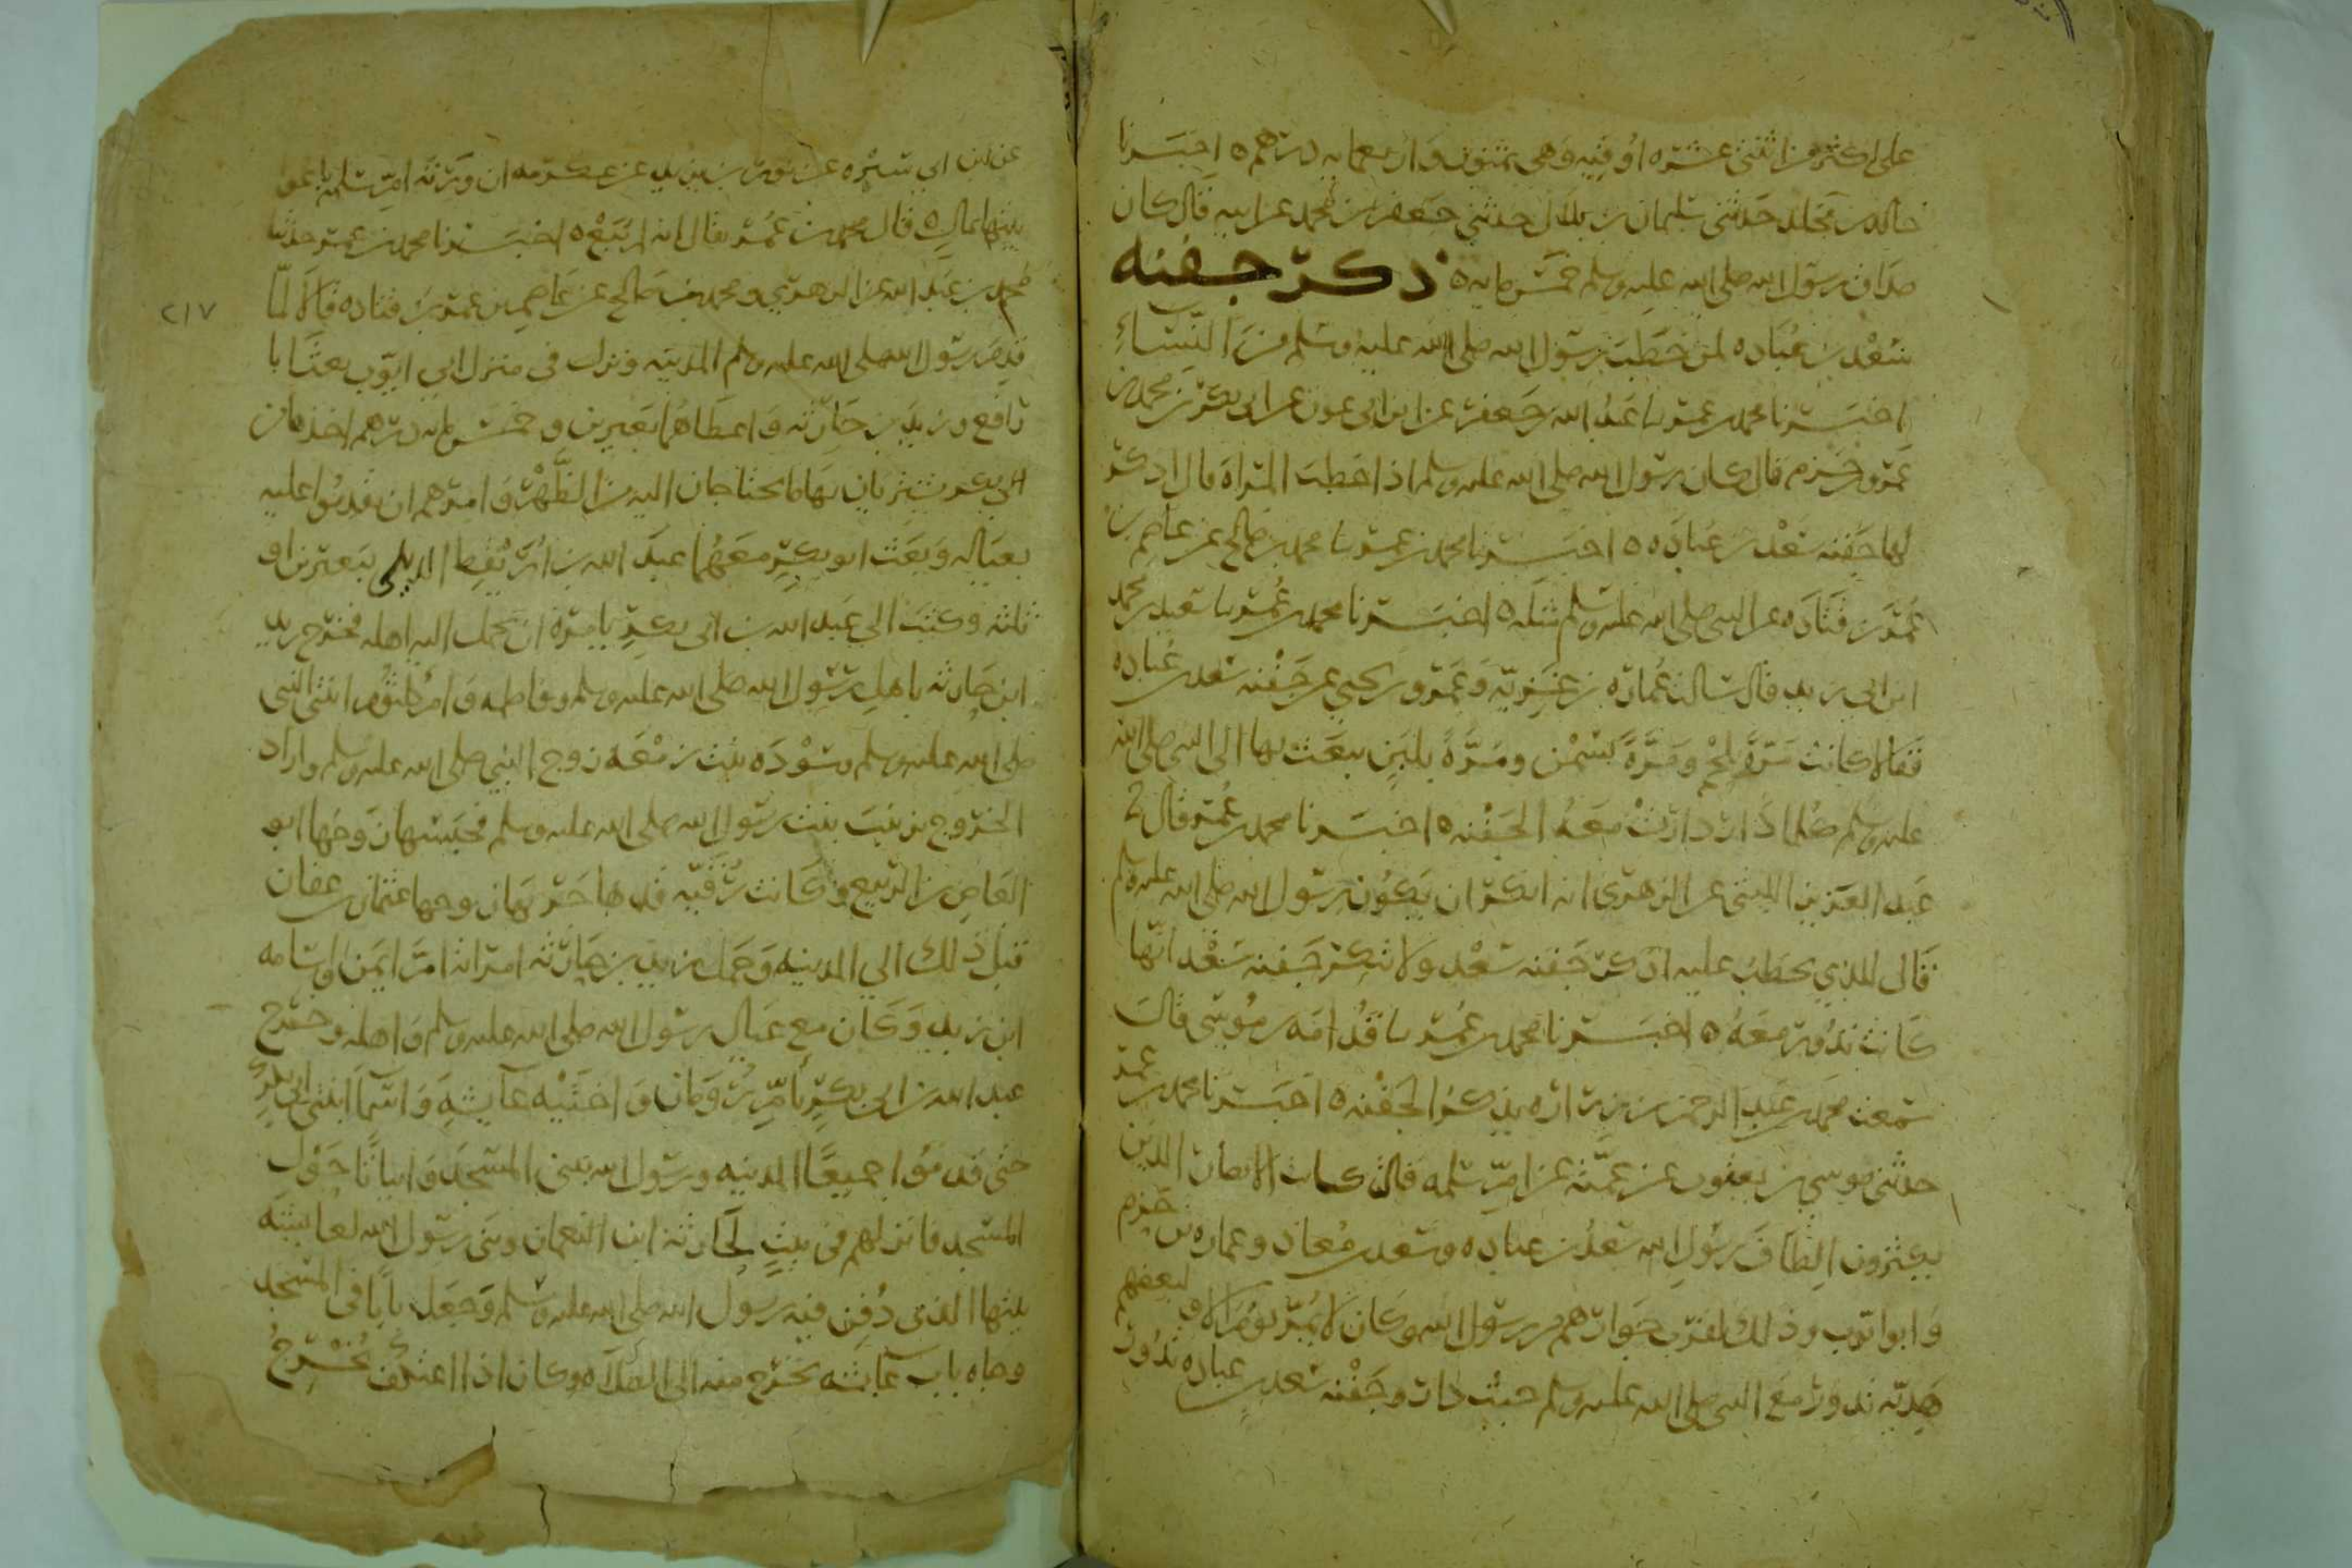 على اكثر من اثنتى عشره اوقيه وهى ثمنون واربعمايه درهم ه اخبرنا
خالد بن مخلد حدثنى سليمان بن بلال حدثنى جعفر بن محمد عن ابيه قال كان
صداق رسول الله صلى الله عليه وسلم خمس مايه ه ذكر جفنه
سعد بن عباده لمن خطب رسول الله صلى الله عليه وسلم من النساء
اخبرنا محمد بن عمر نا عبد الله بن جعفر عن ابن ابى عون عن ابى بكر بن محمد بن
عمرو بن حزم قال كان رسول الله صلى الله عليه وسلم اذا خطب المراة قال اذكروا
لها جفنه سعد بن عباده ه ه اخبرنا محمد بن عمر نا محمد بن صالح عن عاصم بن
عمر بن قتاده عن النبى صلى الله عليه وسلم مثله ه اخبرنا محمد بن عمر نا سعيد بن محمد
ابن ابي زيد قال سالت عماره بن غزيه وعمرو بن يحيى عن جفنه سعد بن عباده
فقالا كانت مرة بلحم ومرة بسمن ومرة بلبن يبعث بها الى النبى صلى الله
عليه وسلم كلما دار دارت معه الجفنه ه اخبرنا محمد بن عمر قال
عبد العزيز الليثى عن الزهرى انه انكر ان يكون رسول الله صلى الله عليه وسلم
قال للذي يخطب عليه اذكر جفنه سعد ولا تنكر جفنه سعد انها
كانت تدور معه ه اخبرنا محمد بن عمر نا قدامه بن موسى قال
سمعت محمد بن عبد الرحمن بن زراره يذكر الجفنه ه اخبرنا محمد بن عمر
حدثنى موسى بن يعقوب عن عمته عن ام سلمه قالت كان الانصار الذين
يكثرون الطاف رسول الله سعد بن عباده وسعد بن معاذ وعماره بن حزم
وابو ايوب وذلك لقرب جوارهم من رسول الله وكان لا يمر يوم الا ولبعضهم
هديه تدور مع النبى صلى الله عليه وسلم حيث دار وجفنه سعد بن عباده تدور
عن ابن ابي سبره عن ثور بن زيد عن عكرمه ان ورثه ام سلمه باعوا
بيتها بمال ه قال محمد بن عمر يقال انه اربع ه اخبرنا محمد بن عمر حدثنا
محمد بن عبد الله عن الزهرى ومحمد بن صالح عن عاصم بن عمر بن قتاده قالا لما
قدم رسول الله صلى الله عليه وسلم المدينه ونزل فى منزل ابى ايوب بعث ابا
رافع وزيد بن حارثه واعطاهما بعيرين وخمس مايه درهم اخذها من
ابي بكر يشتريان بها ما يحتاجان اليه من الظهر وامرهم ان يقدموا عليه
بعياله وبعث ابو بكر معهما عبد الله بن اريقط الديلى ببعيرين او
ثلثه وكتب الى عبد الله بن ابى بكر يامره ان يحمل اليه اهله فخرج زيد
ابن حارثه باهل رسول الله صلى الله عليه وسلم وفاطمه وام كلثوم ابنتى النبى
صلى الله عليه وسلم وسودة بنت زمعه زوج النبى صلى الله عليه وسلم واراد
الخروج بزينب بنت رسول الله صلى الله عليه وسلم فحبسها زوجها ابو
العاص بن الربيع وكانت رقيه قد هاجر بها زوجها عثمان بن عفان
قبل ذلك الى المدينه وحمل زيد بن حارثه امراته ام ايمن واسامه
ابن زيد وكان مع عيال رسول الله صلى الله عليه وسلم واهله وخرج
عبد الله بن ابى بكر بام رومان واختيه عايشه واسما ابنتى ابى بكر
حتى قدموا جميعا المدينه ورسول الله يبنى المسجد وابياتا حول
المسجد فانزلهم فى بيت لحارثه ابن النعمان وبنى رسول الله لعايشه
بيتها الذى دفن فيه رسول الله صلى الله عليه وسلم وجعل بابا فى المسجد
وجاه باب عايشه يخرج منه الى الصلاه وكان اذا اعتكف يخرج
٢١٧